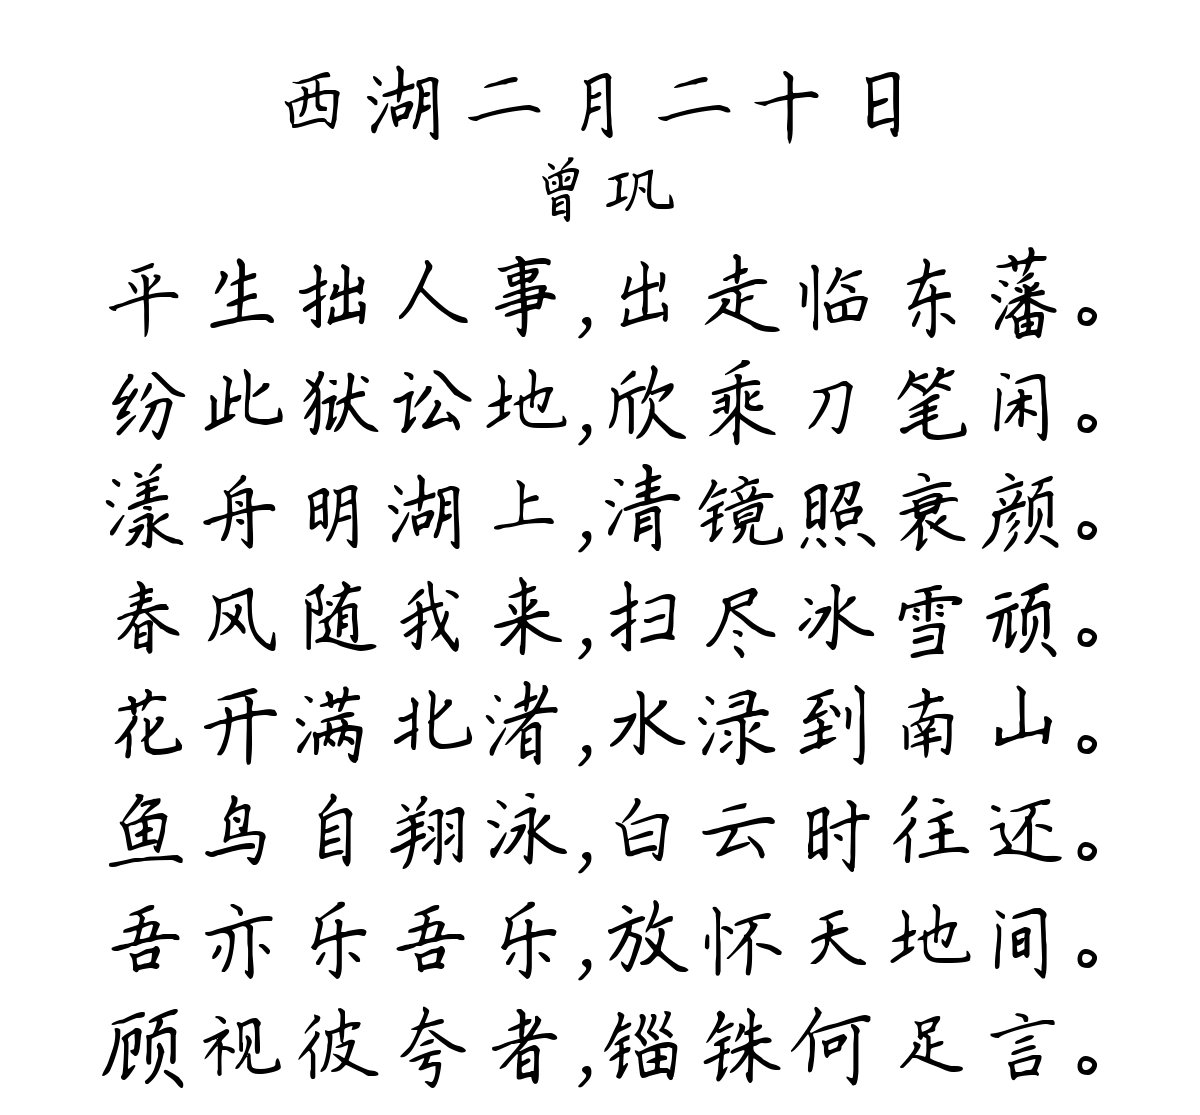 西湖二月二十日
曾巩
平生拙人事,出走临东藩。
纷此狱讼地,欣乘刀笔闲。
漾舟明湖上,清镜照衰颜。
春风随我来,扫尽冰雪顽。
花开满北渚,水渌到南山。
鱼鸟自翔泳,白云时往还。
吾亦乐吾乐,放怀天地间。
顾视彼夸者,锱铢何足言。